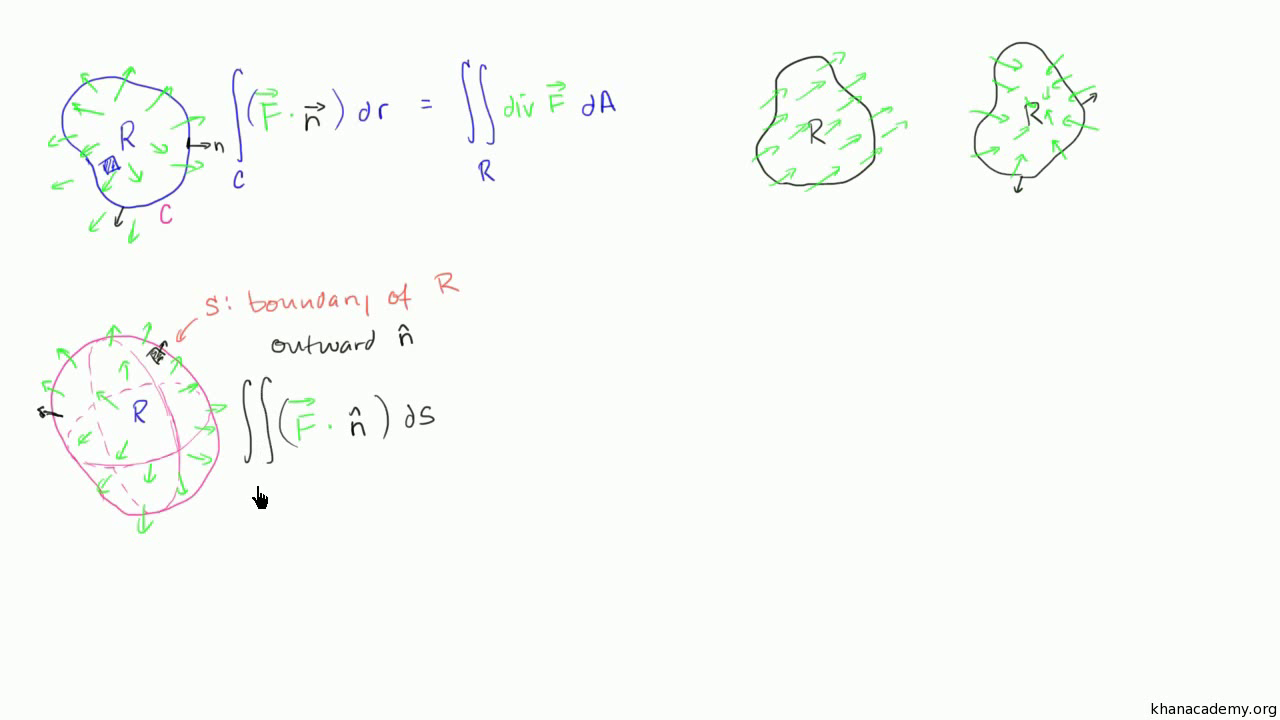 R
n
C
∫_C (F⃗ · n⃗) dr = ∬_R div F⃗ dA
R
R
S: boundary of R
outward n̂
R
∬ (F⃗ · n̂) dS
khanacademy.org